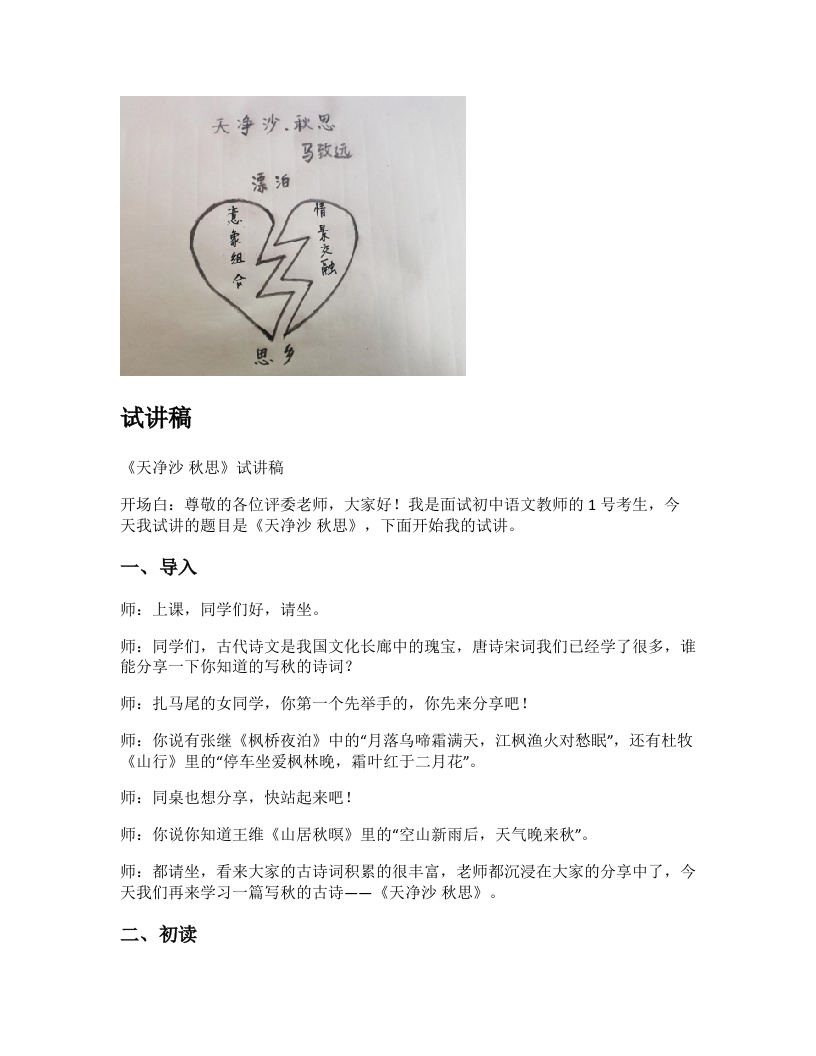 天净沙.秋思
马致远
漂泊
意象组合
情景交融
思乡
试讲稿
《天净沙 秋思》试讲稿
开场白：尊敬的各位评委老师，大家好！我是面试初中语文教师的 1 号考生，今
天我试讲的题目是《天净沙 秋思》，下面开始我的试讲。
一、导入
师：上课，同学们好，请坐。
师：同学们，古代诗文是我国文化长廊中的瑰宝，唐诗宋词我们已经学了很多，谁
能分享一下你知道的写秋的诗词？
师：扎马尾的女同学，你第一个先举手的，你先来分享吧！
师：你说有张继《枫桥夜泊》中的“月落乌啼霜满天，江枫渔火对愁眠”，还有杜牧
《山行》里的“停车坐爱枫林晚，霜叶红于二月花”。
师：同桌也想分享，快站起来吧！
师：你说你知道王维《山居秋暝》里的“空山新雨后，天气晚来秋”。
师：都请坐，看来大家的古诗词积累的很丰富，老师都沉浸在大家的分享中了，今
天我们再来学习一篇写秋的古诗——《天净沙 秋思》。
二、初读